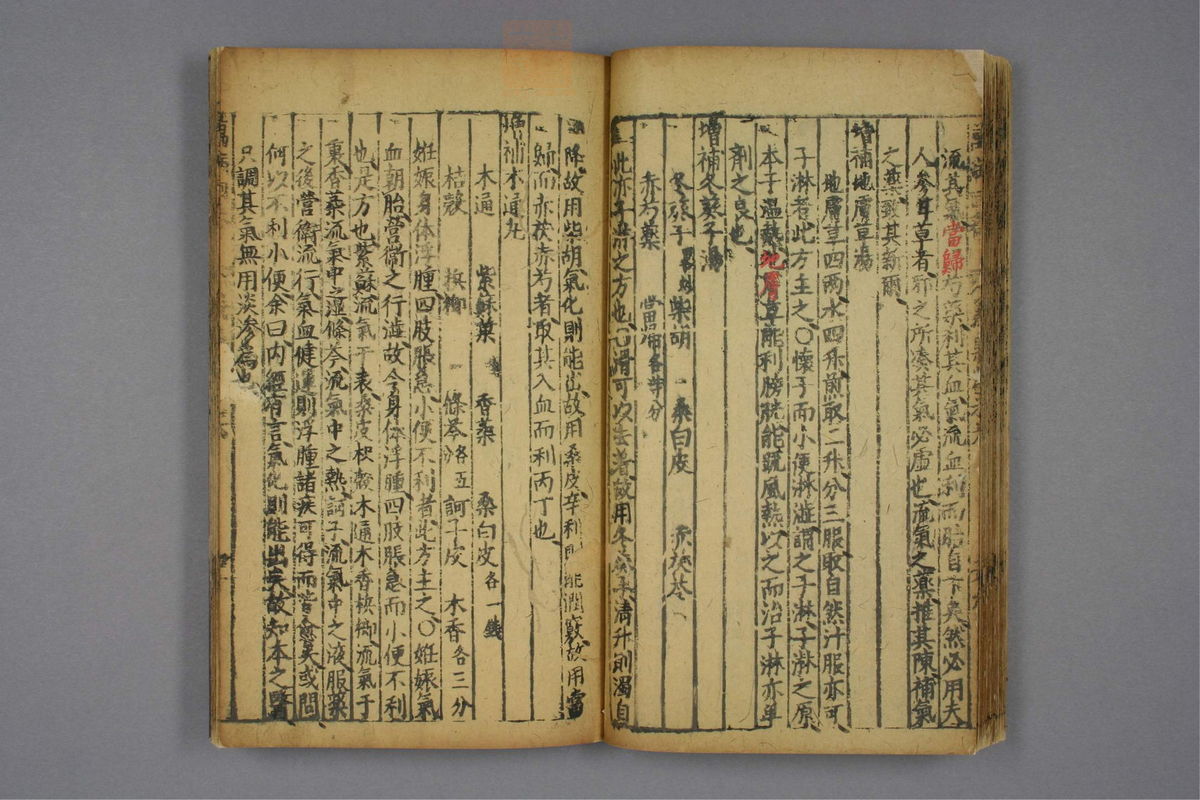 流其氣當歸芍藥利其血氣流血利而胎自下矣然必用夫
人參甘草者邪之所湊其氣必虛也流氣之藥推其陳補氣
之藥致其新爾
增補地膚草湯
地膚草四兩水四升煎取二升分三服取自然汁服亦可
子淋者此方主之〇懷子而小便淋澁謂之子淋子淋之原
本于溫熱地膚草能利膀胱能疏風熱以之而治子淋亦單
劑之良也
增補冬葵子湯
冬葵子 柴胡 桑白皮 赤茯苓
赤芍藥 當歸各等分
此亦子淋之方也滑可以去著故用冬葵子清升則濁自
降故用柴胡氣化則能出故用桑皮辛利則能潤竅故用當
歸而赤茯赤芍者取其入血而利丙丁也
增補木通丸
木通 紫蘇葉 香薷 桑白皮各一錢
枯殼 檳榔 條芩各五分 訶子皮 木香各三分
姙娠身体浮腫四肢脹急小便不利者此方主之〇姙娠氣
血朝胎營衛之行澁故令身体浮腫四肢脹急而小便不利
也是方也紫蘇流氣于表桑皮枳殼木通木香檳榔流氣于
裏香薷流氣中之濕條芩流氣中之熱訶子流氣中之液服藥
之後營衛流行氣血健運則浮腫諸疾可得而皆愈矣或問
何以不利小便余曰内經有言氣化則能出矣故知本之醫
只調其氣無用淡滲為也